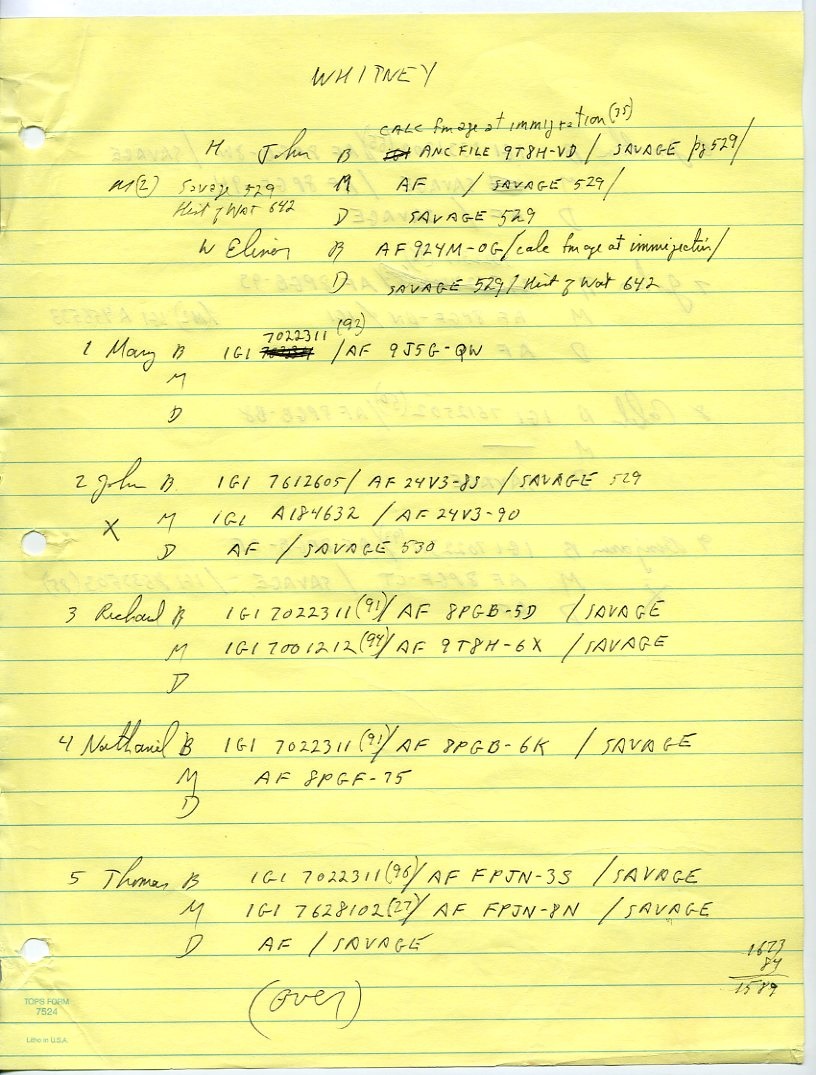 WHITNEY
CALC fm age at immigration (35)
H John B ANC FILE 9T8H-VD / SAVAGE pg 529/
M(2) Savage 529 M AF / SAVAGE 529/
Hist of Wat 642 D SAVAGE 529
W Elinor B AF 924M-0G/calc fm age at immigration/
D SAVAGE 529/ Hist of Wat 642
7022311 (92)
1 Mary B IGI / AF 9J5G-QW
M
D
2 John B IGI 7612605/ AF 24V3-8S / SAVAGE 529
X M IGI A184632 / AF 24V3-90
D AF / SAVAGE 530
3 Richard B IGI 7022311(91)/ AF 8PGB-5D / SAVAGE
M IGI 7001212(94)/ AF 9T8H-6X / SAVAGE
D
4 Nathaniel B IGI 7022311(91)/ AF 8PGB-6K / SAVAGE
M AF 8PGF-75
D
5 Thomas B IGI 7022311(96)/ AF FPJN-3S / SAVAGE
M IGI 7628102(27)/ AF FPJN-8N / SAVAGE
D AF / SAVAGE
1673
84
1589
(over)
TOPS FORM
7524
Litho in U.S.A.